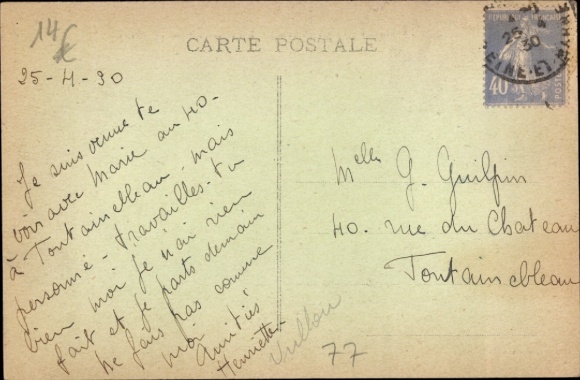 14 €
CARTE POSTALE
25-4-30
Je suis venue te
voir avec Marie au 40-
à Fontainebleau mais
personne - travailles-tu
bien moi je n'ai rien
fait et je parts demain
ne fais pas comme
moi
Amitiés
Henriette
Melle G. Guilpin
40. rue du Chateau
Fontainebleau
77
REPUBLIQUE FRANCAISE
25 4
30
40
POSTES